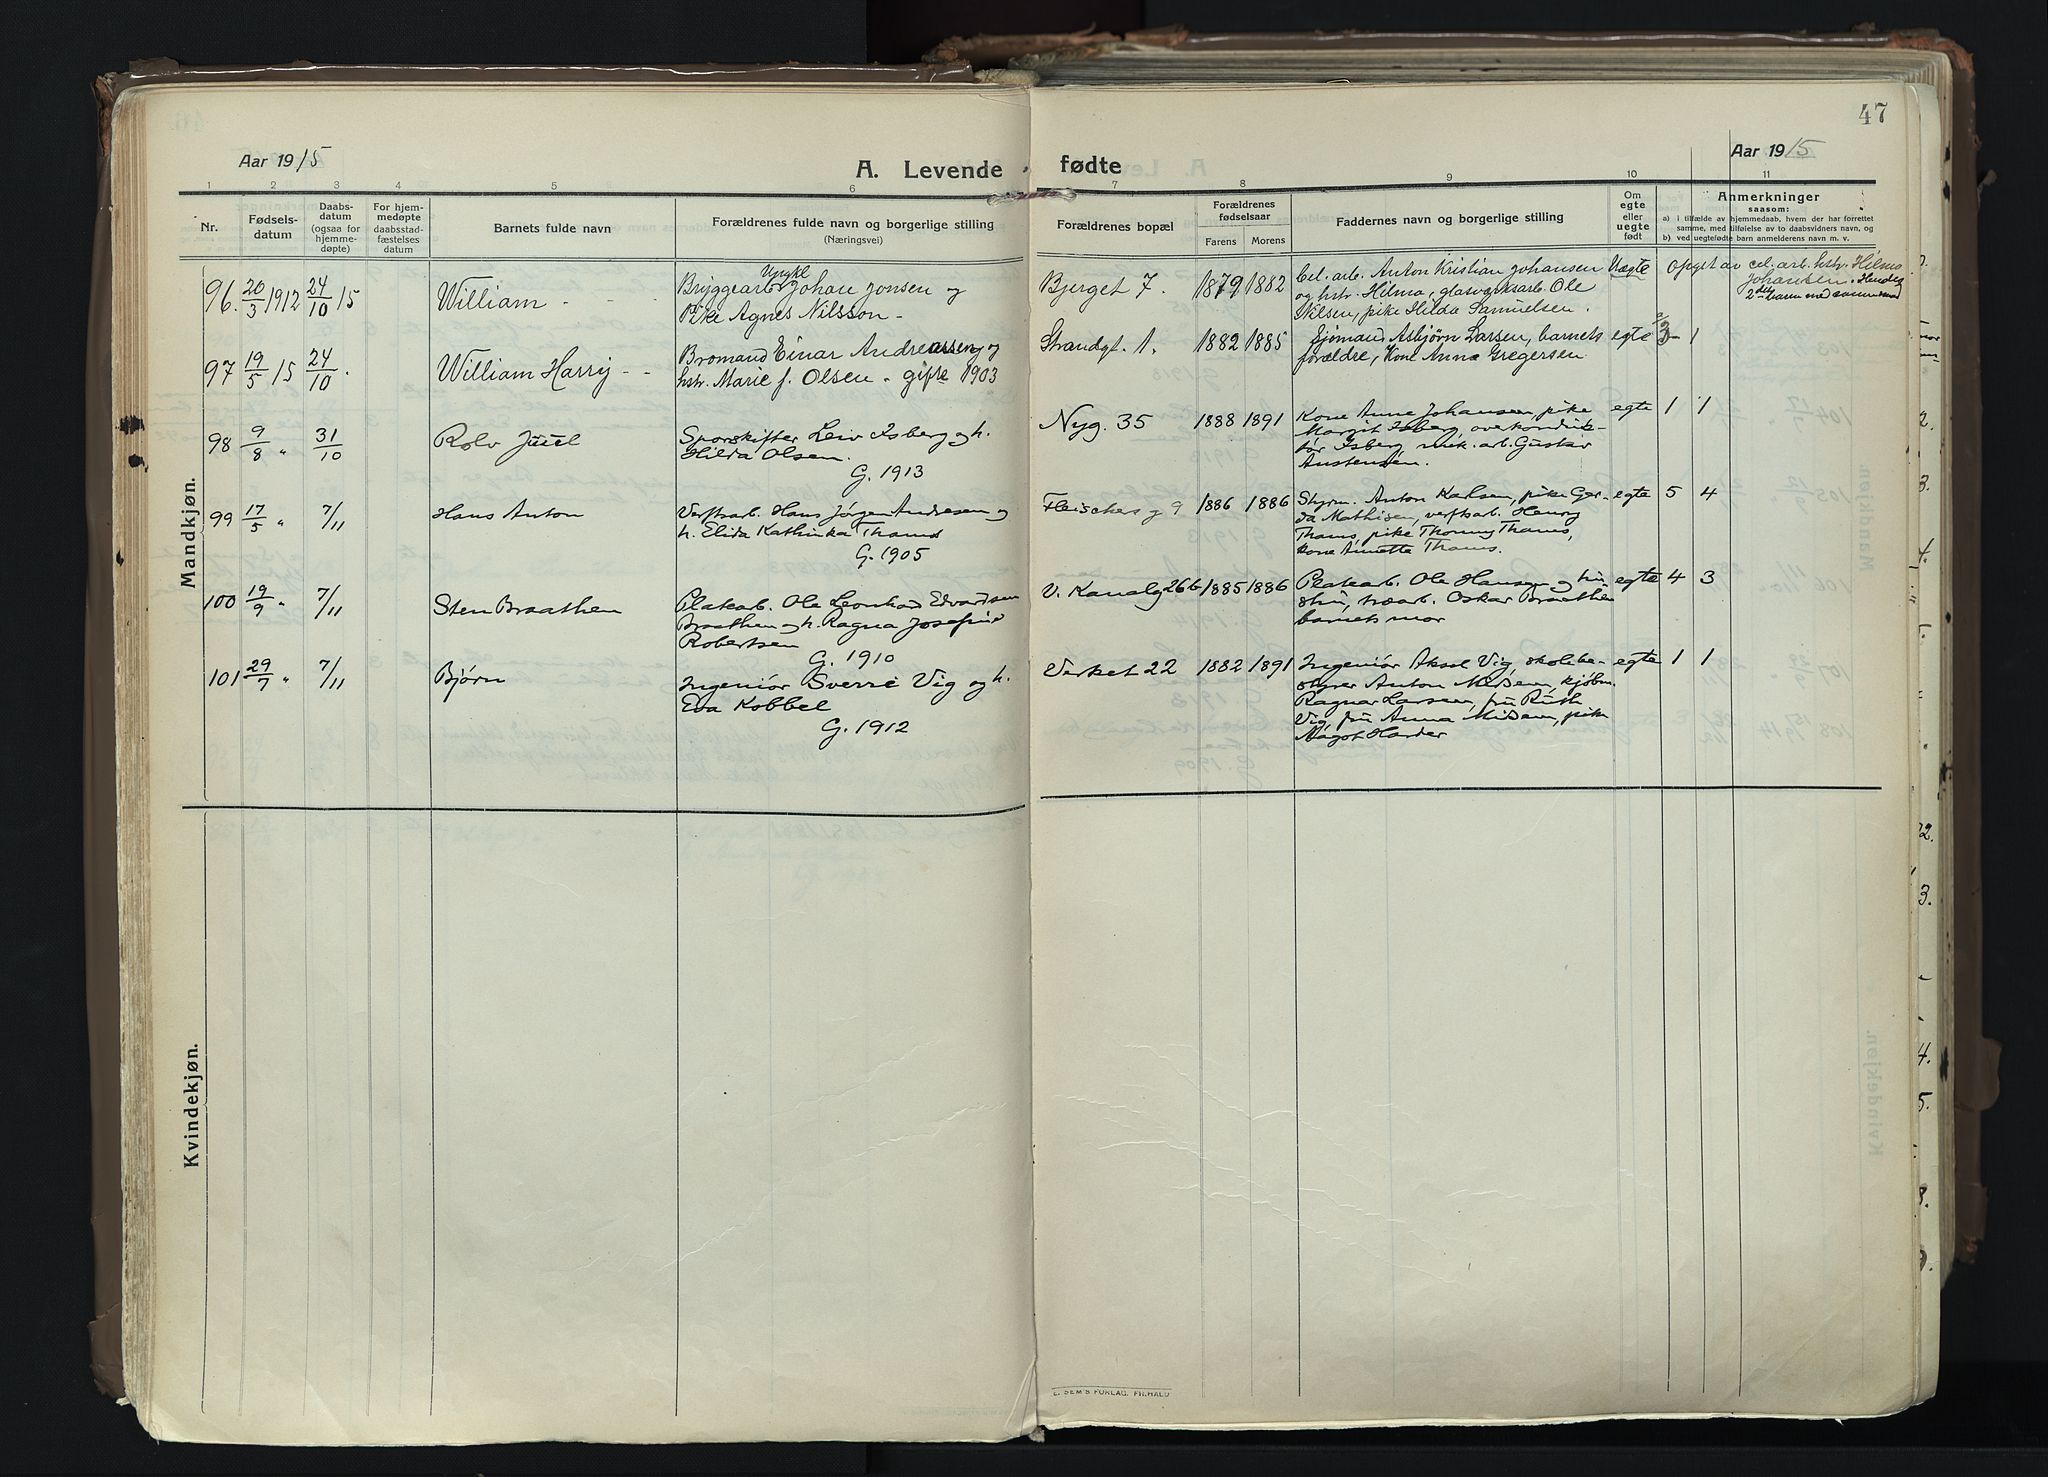 47
Aar 1915
A. Levende fødte
Aar 1915
1 2 3 4 5 6 7 8 9 10 11
Nr.
Fødsels-
datum
Daabs-
datum
(ogsaa for
hjemme-
døpte)
For hjem-
medøpte
daabsstad-
fæstelses
datum
Barnets fulde navn
Forældrenes fulde navn og borgerlige stilling
(Næringsvei)
Forældrenes bopæl
Forældrenes
fødselsaar
Farens Morens
Faddernes navn og borgerlige stilling
Om
egte
eller
uegte
født
Anmerkninger
saasom:
a) i tilfælde av hjemmedaab, hvem der har forrettet
samme, med tilføielse av to daabsvidners navn, og
b) ved uegtefødte barn anmelderens navn m. v.
Mandkjøn.
96. 20/3 1912 24/10 15 William
Ungkl
Bryggearb Johan Jonsen og
Pike Agnes Nilsson
Bjerget 7. 1879 1882
Cel. arb. Anton Kristian Johansen
og hstr. Hilma, glasverksarb. Ole
Nilsen, pike Hilda Samuelsen.
Uegte
Opgit av cel. arb. hstr. Hilma
Johansen.
97 19/5 15 24/10. William Harry
Bromand Einar Andreassen og
hstr. Marie f. Olsen gifte 1903
Strandgt. 1. 1882 1885
Sjømand Asbjørn Larsen, barnets
forældre, Kone Anna Gregersen
egte 3 1
98 9/8 " 31/10 Rolv Juuel
Sporskifter Leiv Isberg og h.
Hilda Olsen.
G. 1913
Nyg. 35 1888 1891
Kone Anne Johansen, pike
Margit Isberg, overkonduk-
tør Isberg mek. arb. Gustav
Austensen.
egte 1 1
99 17/5 " 7/11 Hans Anton
Verftsarb. Hans Jørgen Andresen og
h. Elida Kathinka Thams
G. 1905
Fleischers g 9 1886 1886
Styrm. Anton Karlsen, pike Ger-
da Mathisen, verftsarb. Henry
Thams, pike Thonny Thams,
kone Annette Thams.
egte 5 4
100 19/9 " 7/11 Sten Braathen
Platearb. Ole Leonhad Edvardsen
Braathen og h. Ragna Josefine
Robertsen
G. 1910
V. Kanalg 26b 1885 1886
Platearb. Ole Hansen og hu-
stru, træarb. Oskar Braathen
barnets mor
egte 4 3
101 29/7 " 7/11 Bjørn
Ingeniør Sverre Vig og h.
Eva Kobbel
G. 1912
Verket 22 1882 1891
Ingeniør Aksel Vig, skolebe-
styrer Anton Nilsen, kjøbm.
Ragnar Larsen, fru Ruth
Vig, fru Anna Nilsen, pike
Magot Harder
egte 1 1
Kvindekjøn.
E. SEM'S FORLAG. FR.HALD